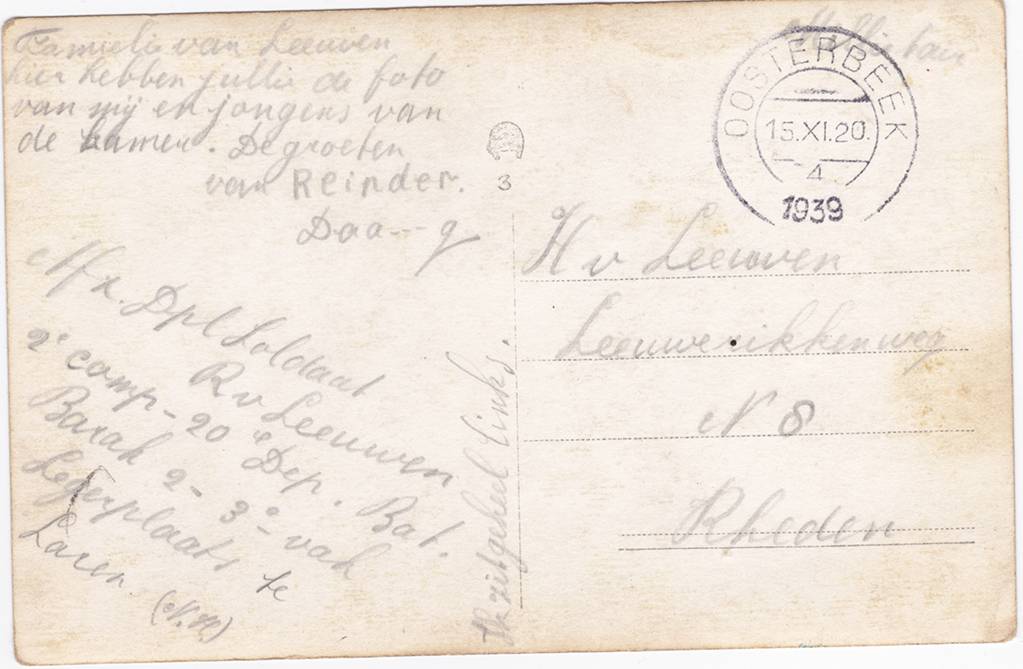 Familie van Leeuven
hier hebben jullie de foto
van mij en jongens van
de kamer. De groeten
van Reinder.
Daa---g
Afz. Dpl Soldaat
R v Leeuwen
2e comp - 20e Dep. Bat.
Barak 2 - 3e vak
Legerplaats te
Laren (N.H.)
Ik zit geheel links.
3
Militair
OOSTERBEEK
15.XI.20.
4
1939
H v Leeuven
Leeuwerikkenweg
N 8
Rheden